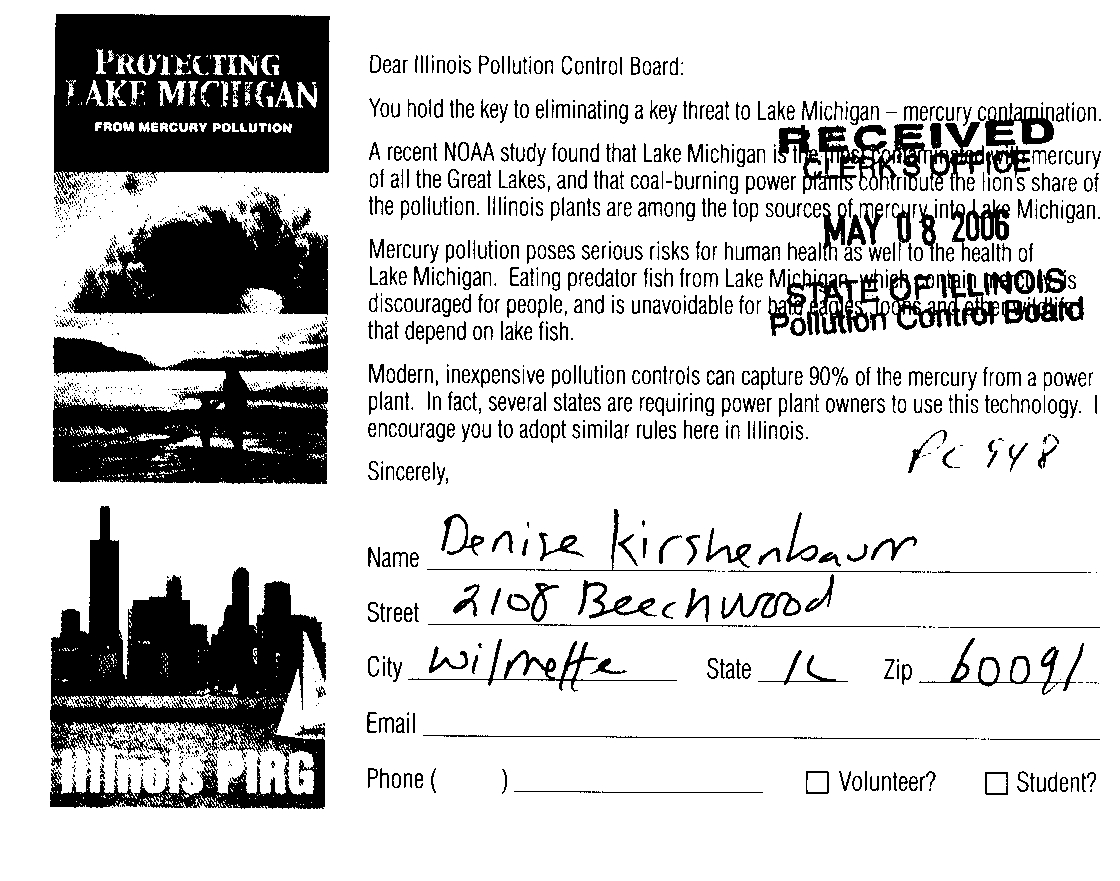 PROTECTING
LAKE MICHIGAN
FROM MERCURY POLLUTION
Illinois PIRG
Dear Illinois Pollution Control Board:
You hold the key to eliminating a key threat to Lake Michigan – mercury contamination.
A recent NOAA study found that Lake Michigan is the most contaminated with mercury
of all the Great Lakes, and that coal-burning power plants contribute the lion's share of
the pollution. Illinois plants are among the top sources of mercury into Lake Michigan.
Mercury pollution poses serious risks for human health as well to the health of
Lake Michigan. Eating predator fish from Lake Michigan, which contain mercury is
discouraged for people, and is unavoidable for bald eagles, loons and other wildlife
that depend on lake fish.
Modern, inexpensive pollution controls can capture 90% of the mercury from a power
plant. In fact, several states are requiring power plant owners to use this technology. I
encourage you to adopt similar rules here in Illinois.
RECEIVED
CLERK'S OFFICE
MAY 08 2006
STATE OF ILLINOIS
Pollution Control Board
PC 948
Sincerely,
Name Denise Kirshenbaum
Street 2108 Beechwood
City Wilmette State IL Zip 60091
Email
Phone ( )
Volunteer? Student?